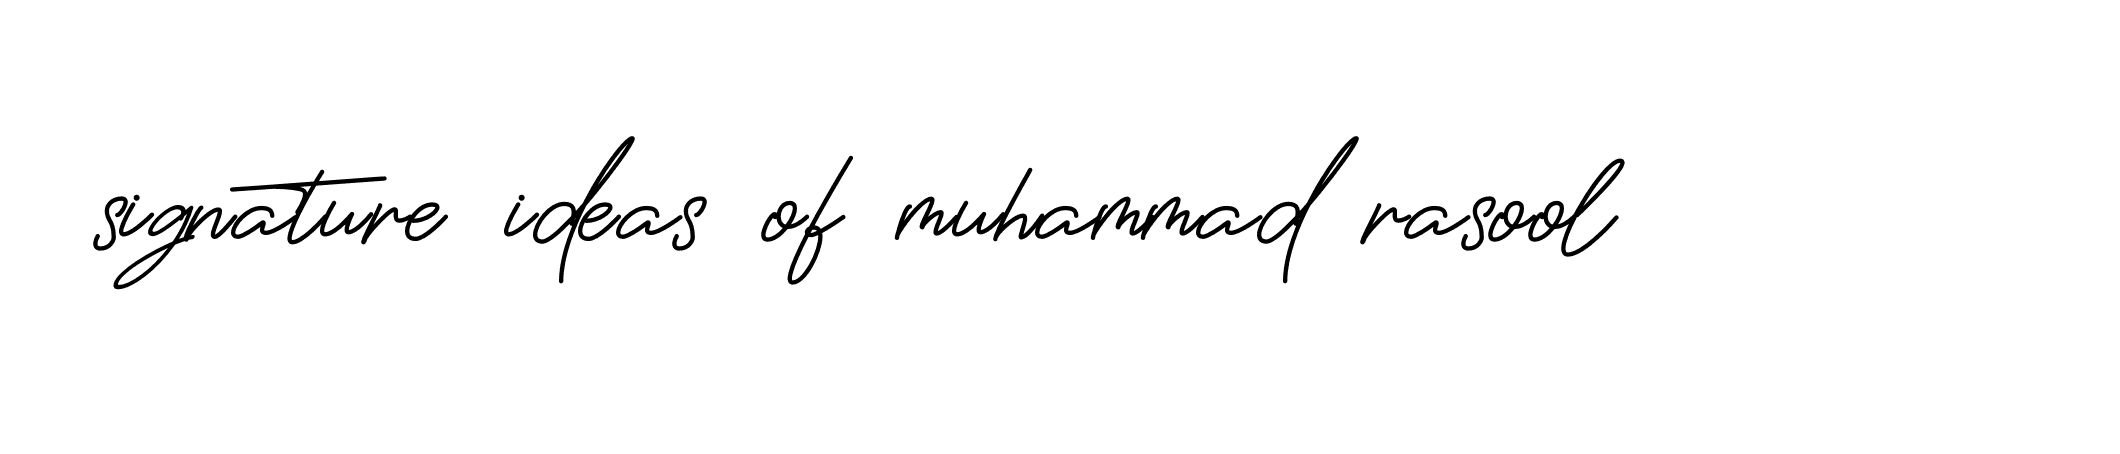 signature ideas of muhammad rasool